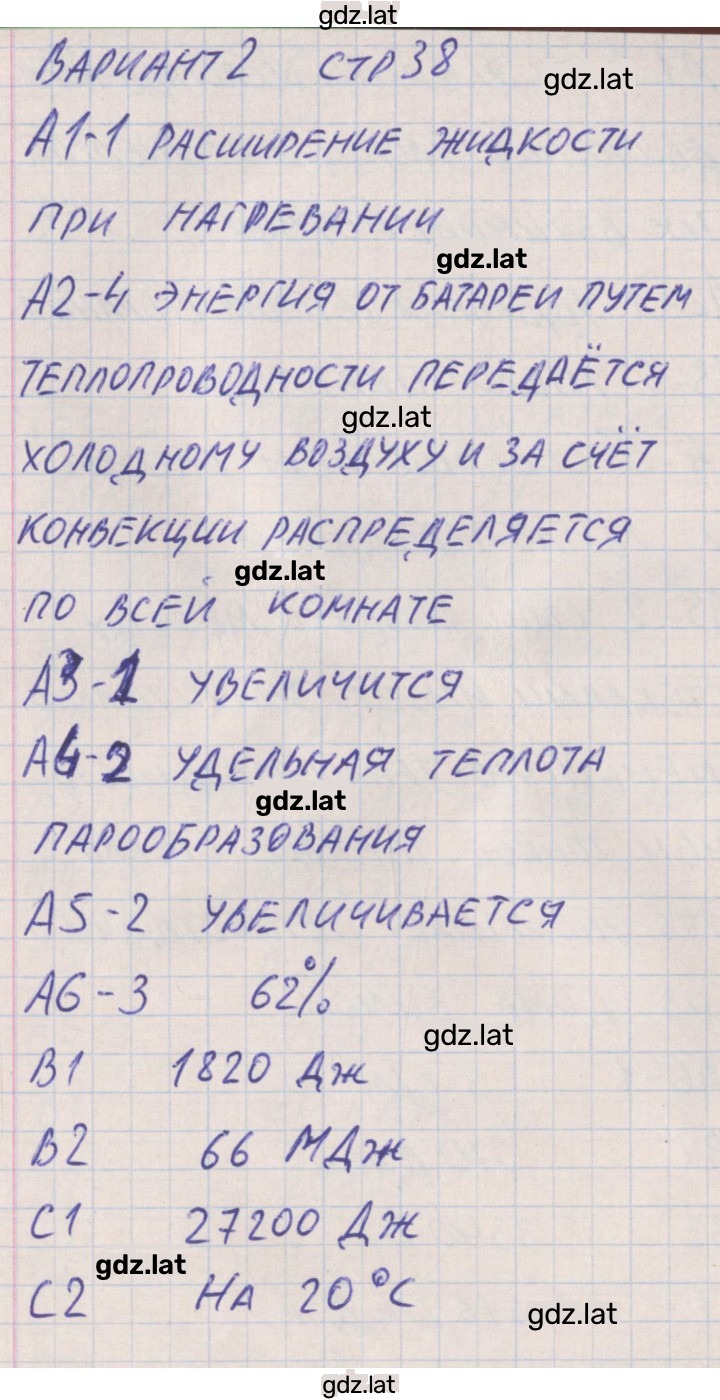 gdz.lat
ВАРИАНТ 2 СТР 38
gdz.lat
А1-1 РАСШИРЕНИЕ ЖИДКОСТИ
ПРИ НАГРЕВАНИИ
gdz.lat
А2-4 ЭНЕРГИЯ ОТ БАТАРЕИ ПУТЕМ
ТЕПЛОПРОВОДНОСТИ ПЕРЕДАЁТСЯ
gdz.lat
ХОЛОДНОМУ ВОЗДУХУ И ЗА СЧЁТ
КОНВЕКЦИИ РАСПРЕДЕЛЯЕТСЯ
gdz.lat
ПО ВСЕЙ КОМНАТЕ
А3-1 УВЕЛИЧИТСЯ
А4-2 УДЕЛЬНАЯ ТЕПЛОТА
gdz.lat
ПАРООБРАЗОВАНИЯ
А5-2 УВЕЛИЧИВАЕТСЯ
А6-3 62%
gdz.lat
В1 1820 Дж
В2 66 МДж
С1 27200 Дж
gdz.lat
С2 НА 20 °С
gdz.lat
gdz.lat